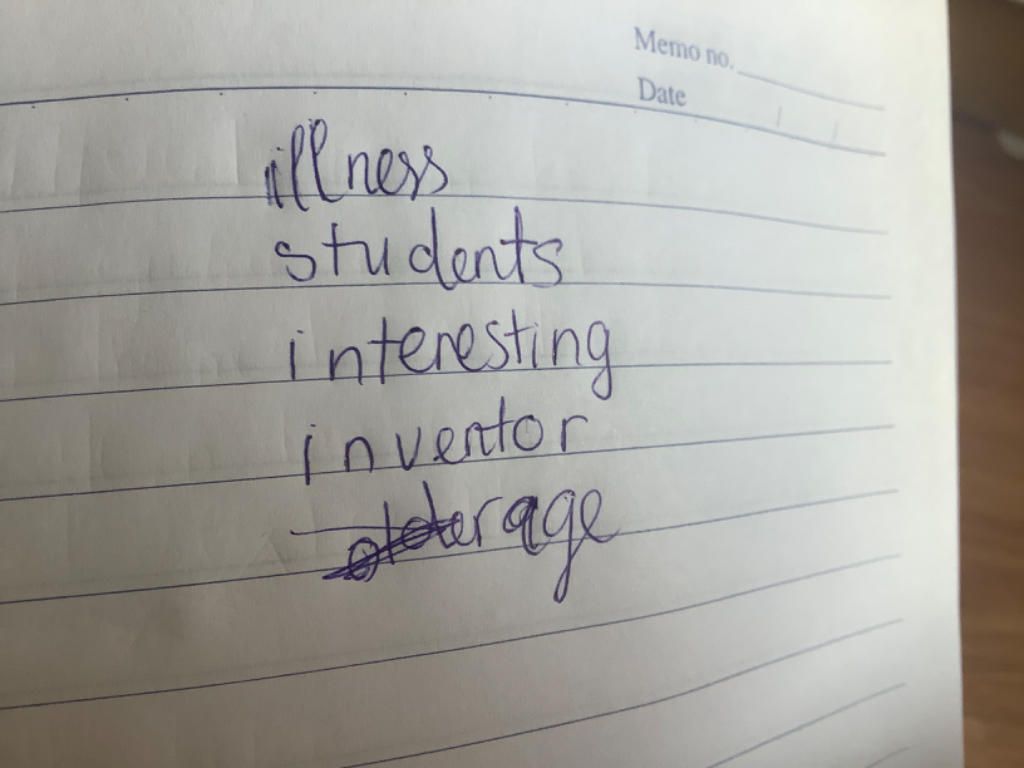 Memo no.
Date / /
illness
students
interesting
inventor
older age